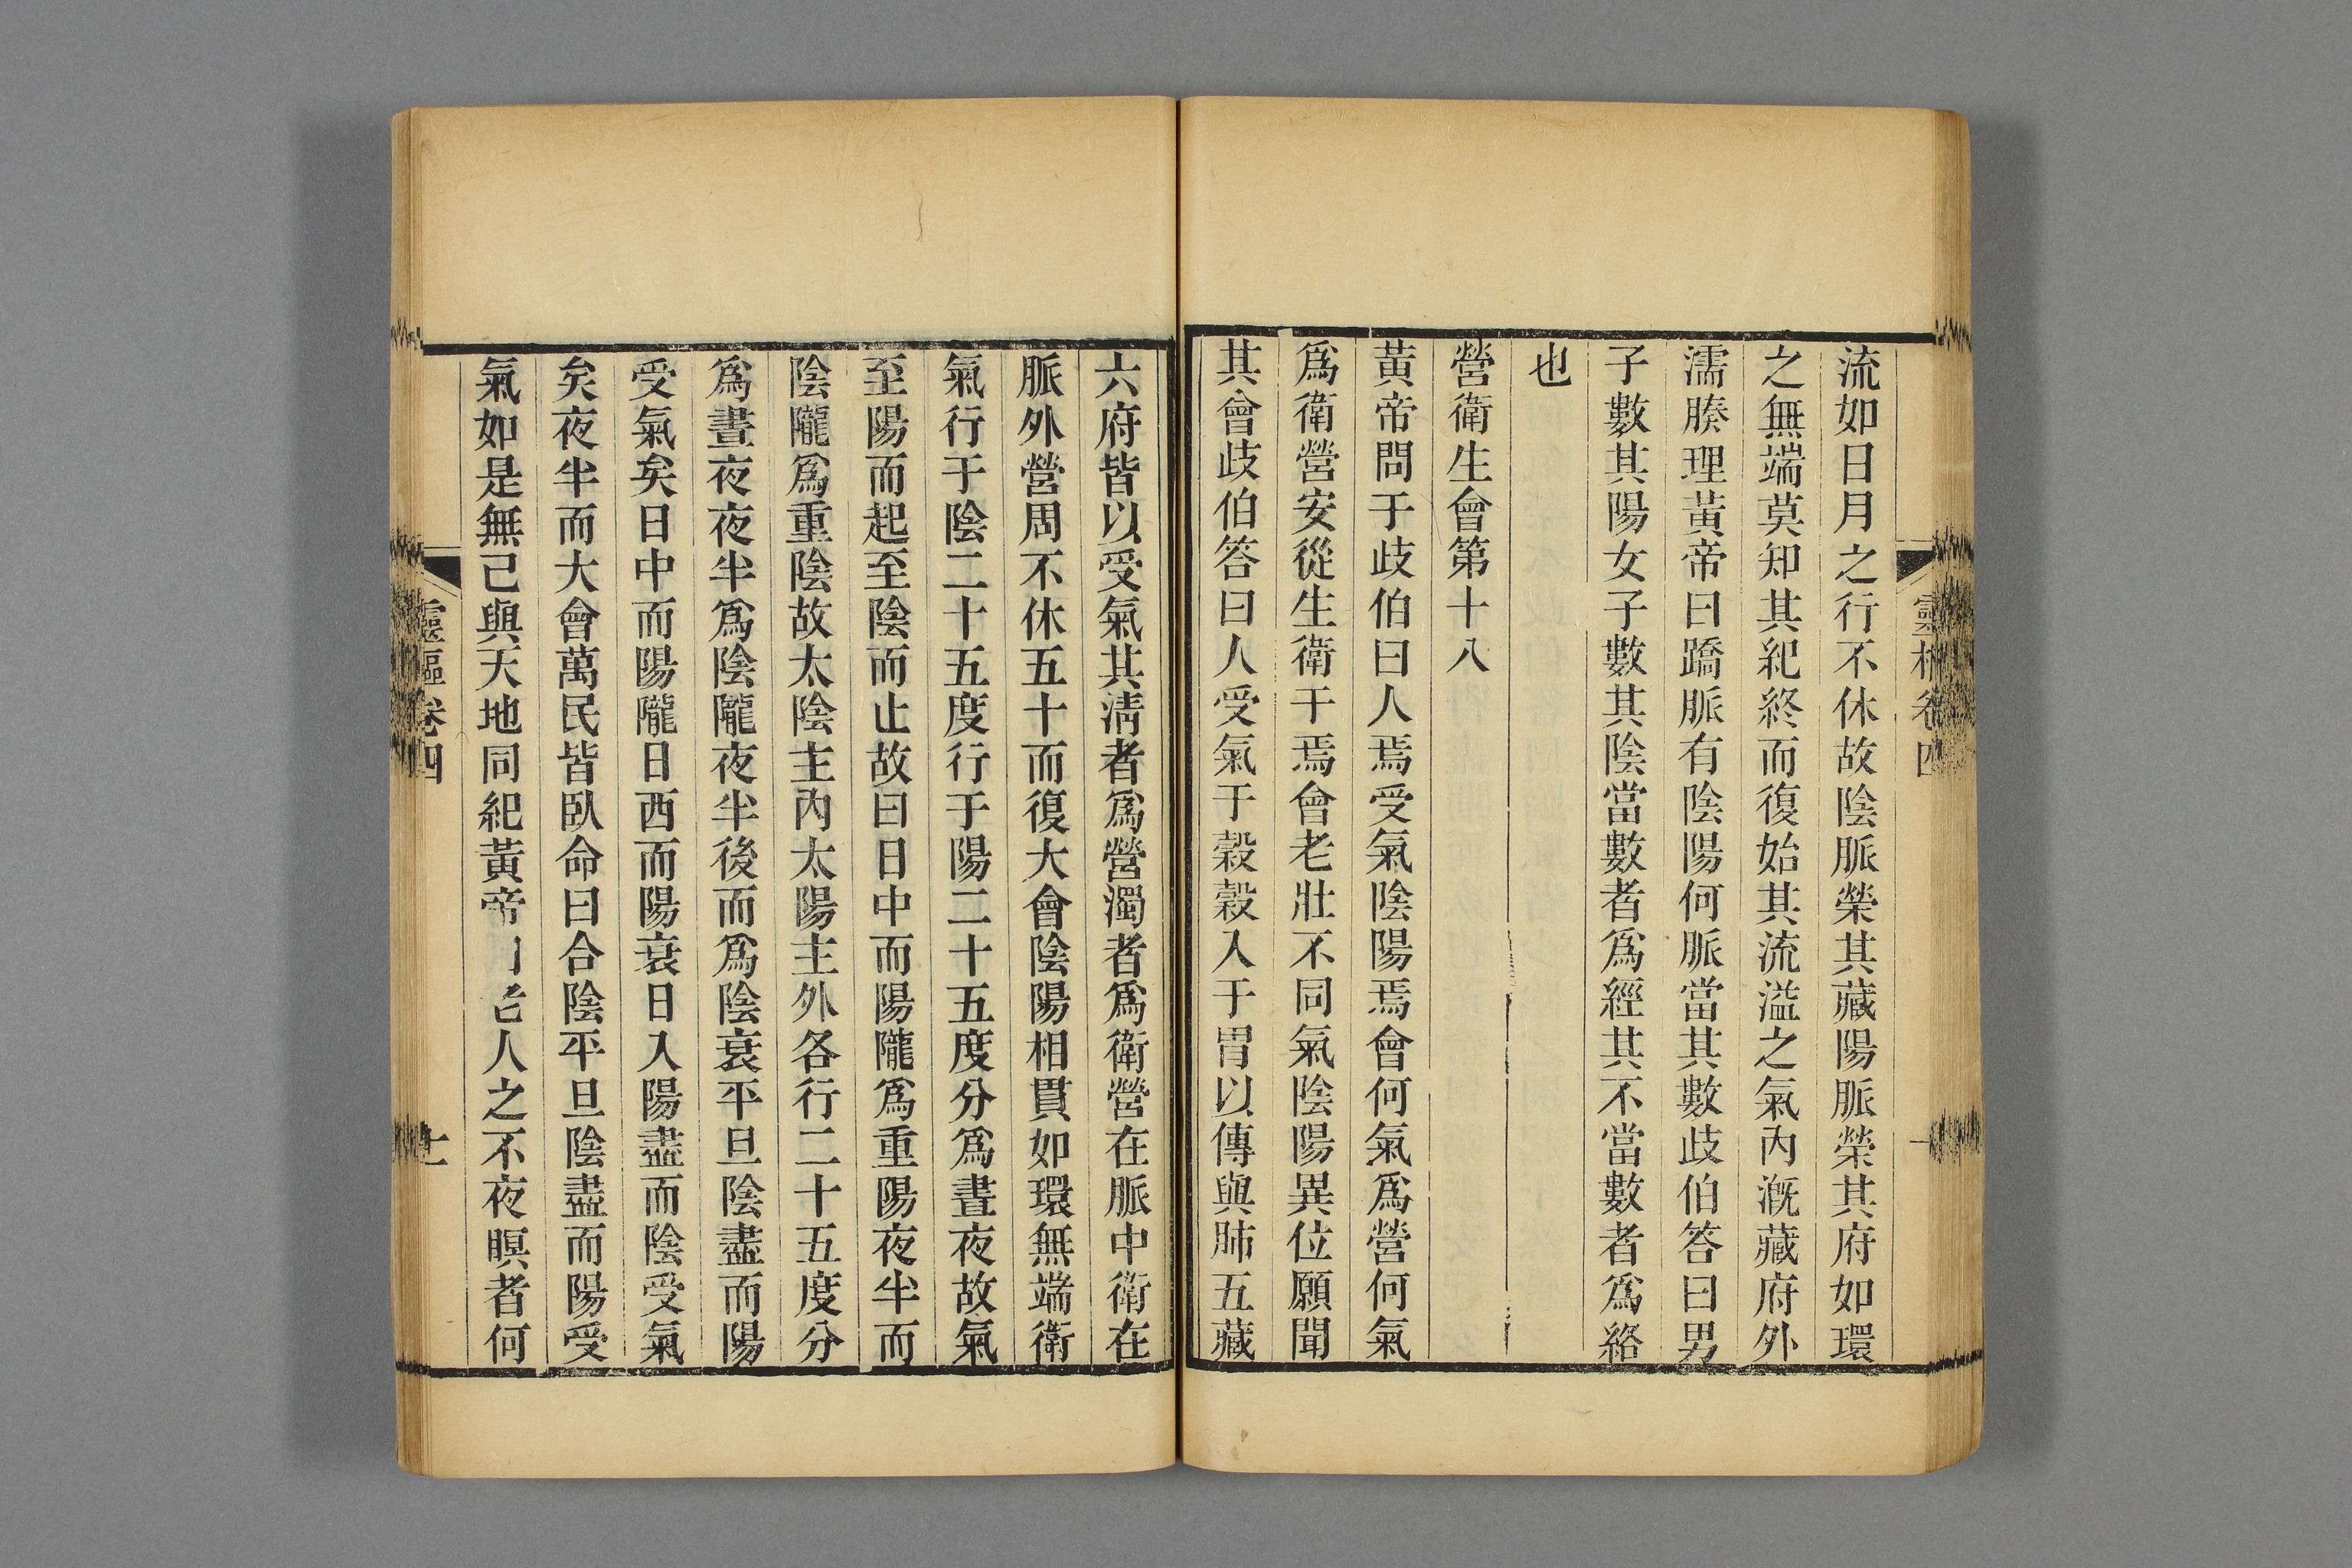 流如日月之行不休故陰脈榮其藏陽脈榮其府如環
之無端莫知其紀終而復始其流溢之氣內溉藏府外
濡腠理黃帝曰蹻脈有陰陽何脈當其數歧伯答曰男
子數其陽女子數其陰當數者爲經其不當數者爲絡
也
營衛生會第十八
黃帝問于歧伯曰人焉受氣陰陽焉會何氣爲營何氣
爲衛營安從生衛于焉會老壯不同氣陰陽異位願聞
其會歧伯答曰人受氣于穀穀入于胃以傳與肺五藏
六府皆以受氣其淸者爲營濁者爲衛營在脈中衛在
脈外營周不休五十而復大會陰陽相貫如環無端衛
氣行于陰二十五度行于陽二十五度分爲晝夜故氣
至陽而起至陰而止故曰日中而陽隴爲重陽夜半而
陰隴爲重陰故太陰主內太陽主外各行二十五度分
爲晝夜夜半爲陰隴夜半後而爲陰衰平旦陰盡而陽
受氣矣日中而陽隴日西而陽衰日入陽盡而陰受氣
矣夜半而大會萬民皆臥命曰合陰平旦陰盡而陽受
氣如是無己與天地同紀黃帝 人之不夜瞑者何
靈樞卷四